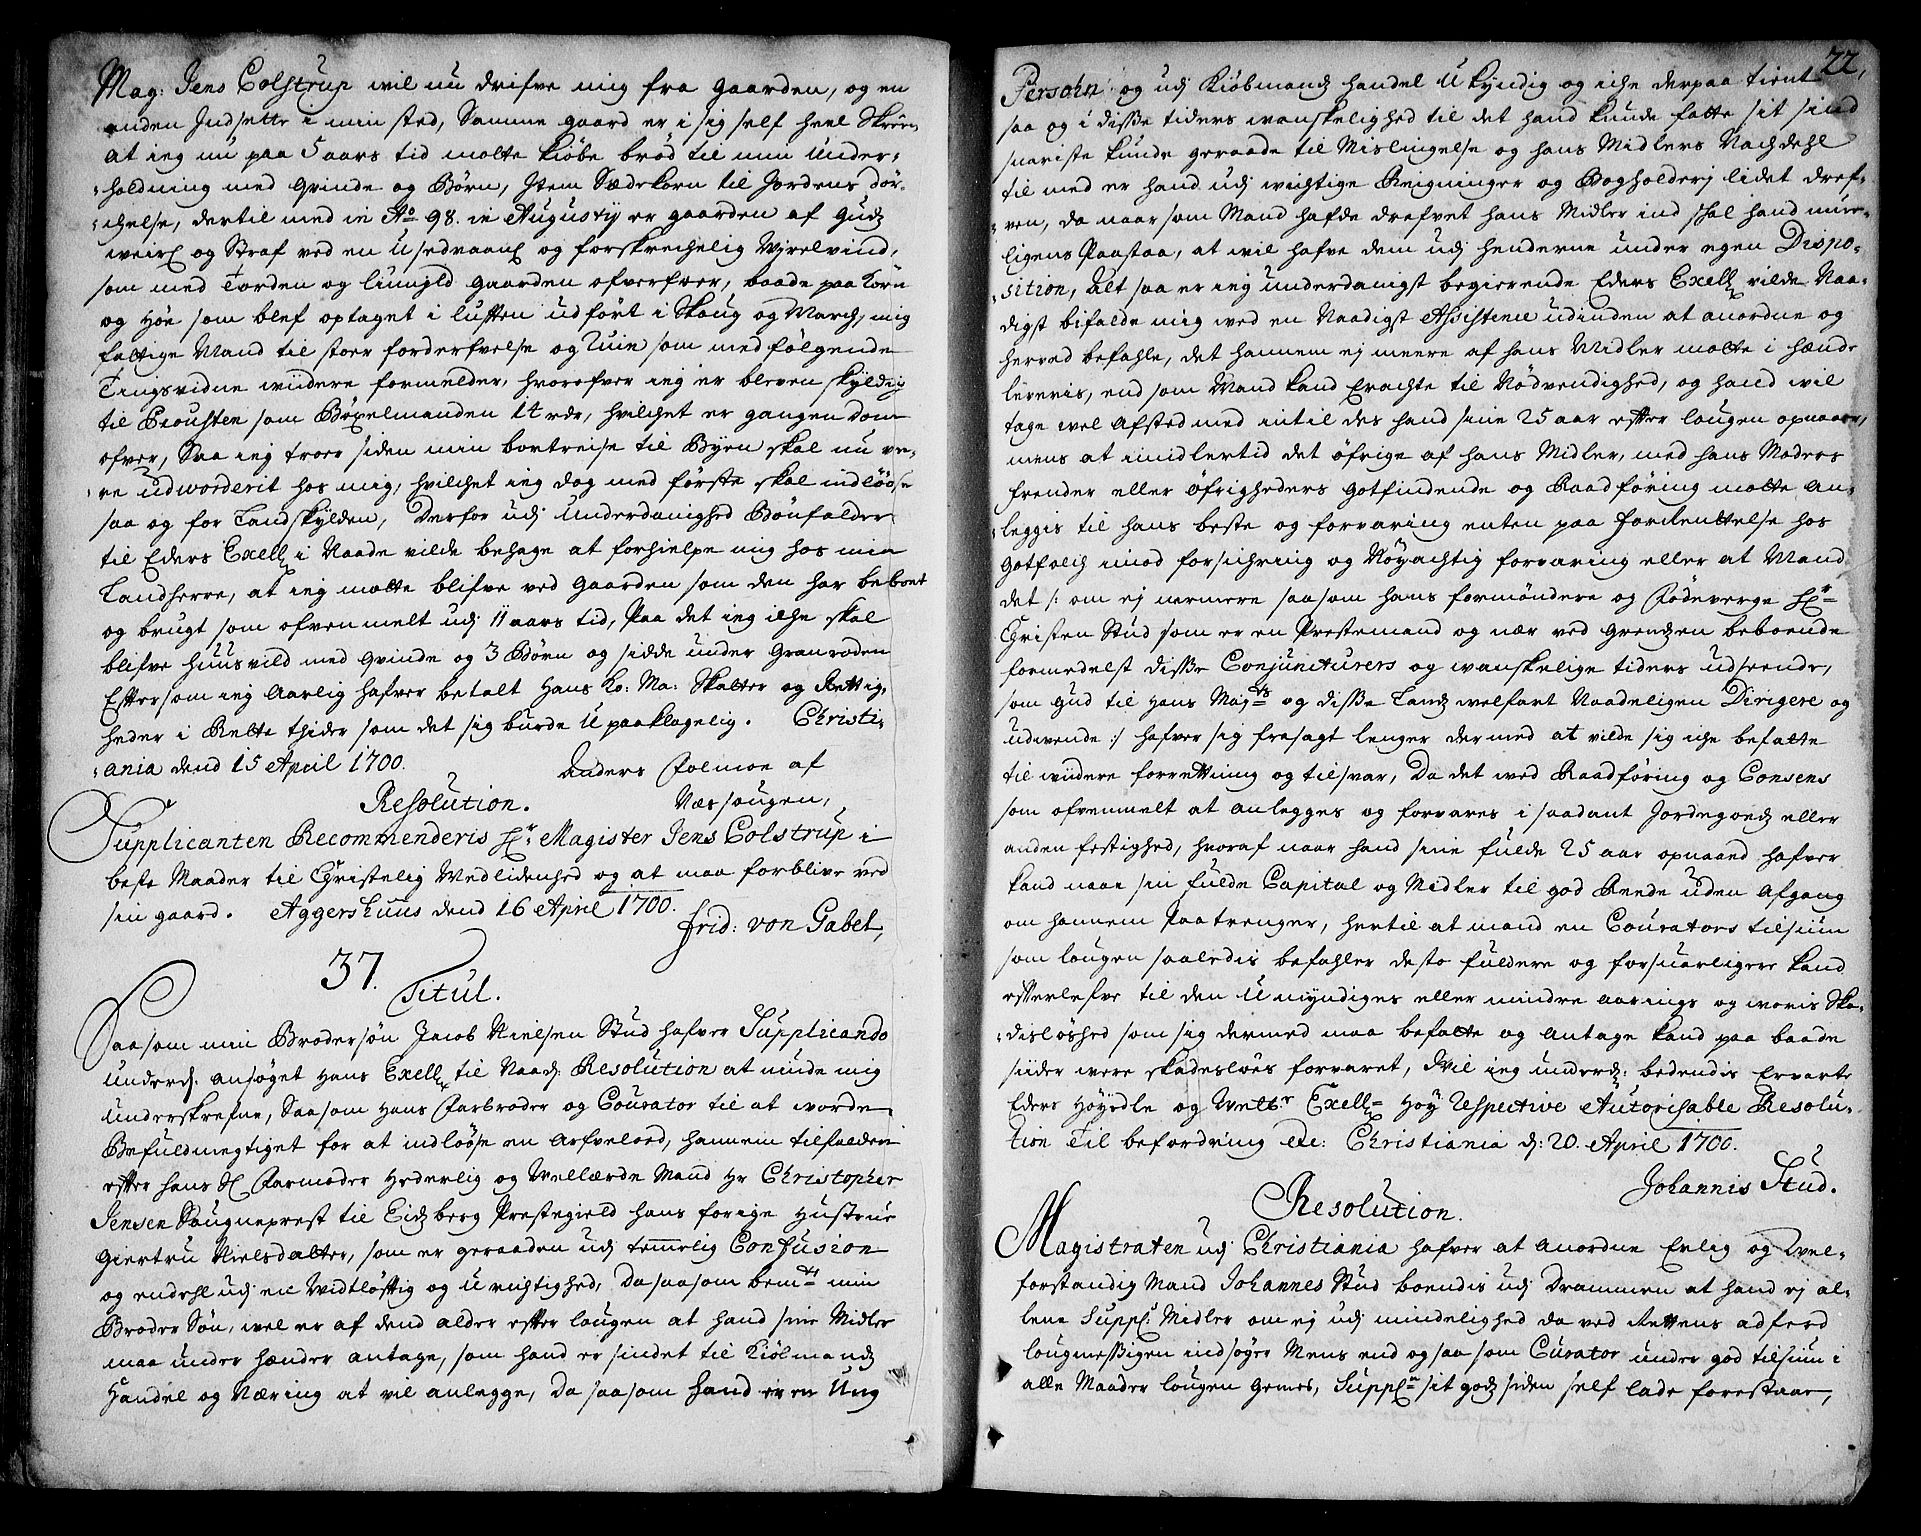 Mag: Jens Colstrup wil nu drifve mig fra gaarden, og en
anden Indsette i min sted, Samme gaard er i sig self heel Skrøe-
at ieg nu paa 5 aars tid motte kiøbe brød til min Under-
holdning med Qvinde og Børn, Item Sædekorn til Jordens dør-
chelse, dertil med in Ao 98. in Augusty er gaarden af Gudz
weirl og Straf ved en Usedvaanl og forskrechelig Wirelvind,
som med Torden og liunyld gaarden ofverfoer, baade paa Korn
og Høe som blef optaget i luften udført i Skoug og March, mig
fattige Mand til stoer forderfvelse og Ruin som med følgende
Tingsvidne widere formelder, hvorofver ieg er bleven skyldig
til Prousten som Bøxelmanden 14 rdr, hvilchet er gangen dom
ofver, Saa ieg troer siden min bortreise til Byen skal nu ve-
re udworderit hos mig, hvilchet ieg dog med første skal indløøse
saa og for Landskylden, Derfor udj Underdanighed Bønfalder
til Eders Exell i Naade vilde behage at forhielpe mig hos min
Landherre, at ieg motte blifve ved gaarden som den har beboet
og brugt som ofvenmelt udj 11 aars tid, Paa det ieg iche skal
blifve huusvild med Qvinde og 3 Børn og sidde under Granroden
Eftersom ieg Aarlig hafver betalt Hans Ko: Ma: Skatter og Rettig-
heder i Rette thider som det sig burde Upaaklagelig. Christi-
ania dend 15 April 1700. Anders Colmoe af
Resolution. Næs sougen,
Supplicanten Recommenderis Hr. Magister Jens Colstrup i
beste Maader til Christelig Medlidenhed og at maa forblive ved
sin gaard. Aggershuus dend 16 April 1700.
Frid: von Gabel,
37.
Titul.
Saasom min Brodersøn Jacob Nielsen Stud hafver Supplicando
underd. ansøget Hans Exell til Naad. Resolution at minde mig
underskrefne, Saasom Hans Farbroder og Courator til at worde
Befuldmegtiget for at indløøse en Arfvelod, hannem tilfalden
efter hans Sl Farmoder Hederlig og Wellærde Mand Hr Christopher
Jensen Sougneprest til Eidzberg Prestegield hans forige Hustrue
Giertru Nielsdatter, som er geraaden udj temelig Confusion
og endehl udj en Widtløftig og Urichtighed, Da saasom bemte min
Broder Søn, wel er af dend alder efter lougen at hand sine Midler
maa under hænder antage, som hand er sindet til Kiøbmandz
Handel og Næring at vil anlegge, Da saasom hand er en Ung
22,
Persohn og udj Kiøbmandz handel Ukyndig og iche derpaa tient
saa og i disse tiders wanskelighed til det hand kunde fatte sit sind
snariste kunde geraade til Mislingelse og hans Midlers Nachdehl
til med er hand udj wichtige Reigninger og Bogholderj lidet dref-
ven, da naar som Mand hafde drefvet hans Midler ind skal hand mue-
ligens Paastaa, at wil hafve dem udj henderne under egen Dispo-
sition, Alt saa er ieg underdanigst begierende Eders Exell vilde Naa-
digst bifalde mig wed en Naadigst Assistence udinden at anordne og
herved befahle, det hannem ej meere af hans Midler motte i hænde
leveris, end som Mand kand Erachte til Nødvendighed, og hand wil
tage wel Afsted med intil des hand sine 25 aar efter lougen opnaaer,
mens at imidlertid det øfrige af hans Midler, med hans Moders
frender eller Øfrigheders Gotfindende og Raadføring motte an-
leggis til hans beste og forvaring enten paa forrenttelse hos
gotfolch imod forsichring og Nøyachtig forvaring eller at Mand
det /: om ej nermere saasom hans formøndere og Fødeverge Hr.
Christen Stud som er en Prestemand og nær ved Grendzen beboende
formedelst disse Conjuncturers og wanskelige tiders udseende,
som Gud til Hans Mayts og disse Landz welfart Naadeligen Dirigere og
udwende :/ hafver sig frasagt lenger dermed at vilde sig iche befatte
til widere forrettning og tilsvar, Da det wed Raadføring og Consens
som ofvenmelt at anlegges og forvares i saadant Jordegodz eller
anden festighed, hvoraf naar hand sine fulde 25 aar opnaaed hafver
kand naae sin fulde Capital og Midler til god Rede uden Afgang
om hannem Paatrenger, hertil at mand en Courators tilsiun
som lougen saaledis befahler desto fuldere og forsuarligere kand
efterlefve til den Umyndiges eller mindre aarings og woris Ska-
disløshed som sig dermed maa befatte og antage kand paa baade
siider were skadesløes forvaret, Wil ieg underd: bedendis Ervarte
Eders Høyædle og Welbr Exell Høy respective Autorisable Resolu-
tion Til befordring etc: Christiania d: 20. April 1700.
Johannis Stud.
Resolution.
Magistraten udj Christiania hafver at Anordne Erlig og Wel-
forstandig Mand Johannes Stud boendis udj Drammen at hand ej al-
lene Suppl: Midler om ej udj mindelighed da ved Rettens adferd
lougmessigen indsøger Mens end og saa som Curator under god tilsiun i
alle Maader lougen Gemes, Suppln sit godz siden self lade forestaae,